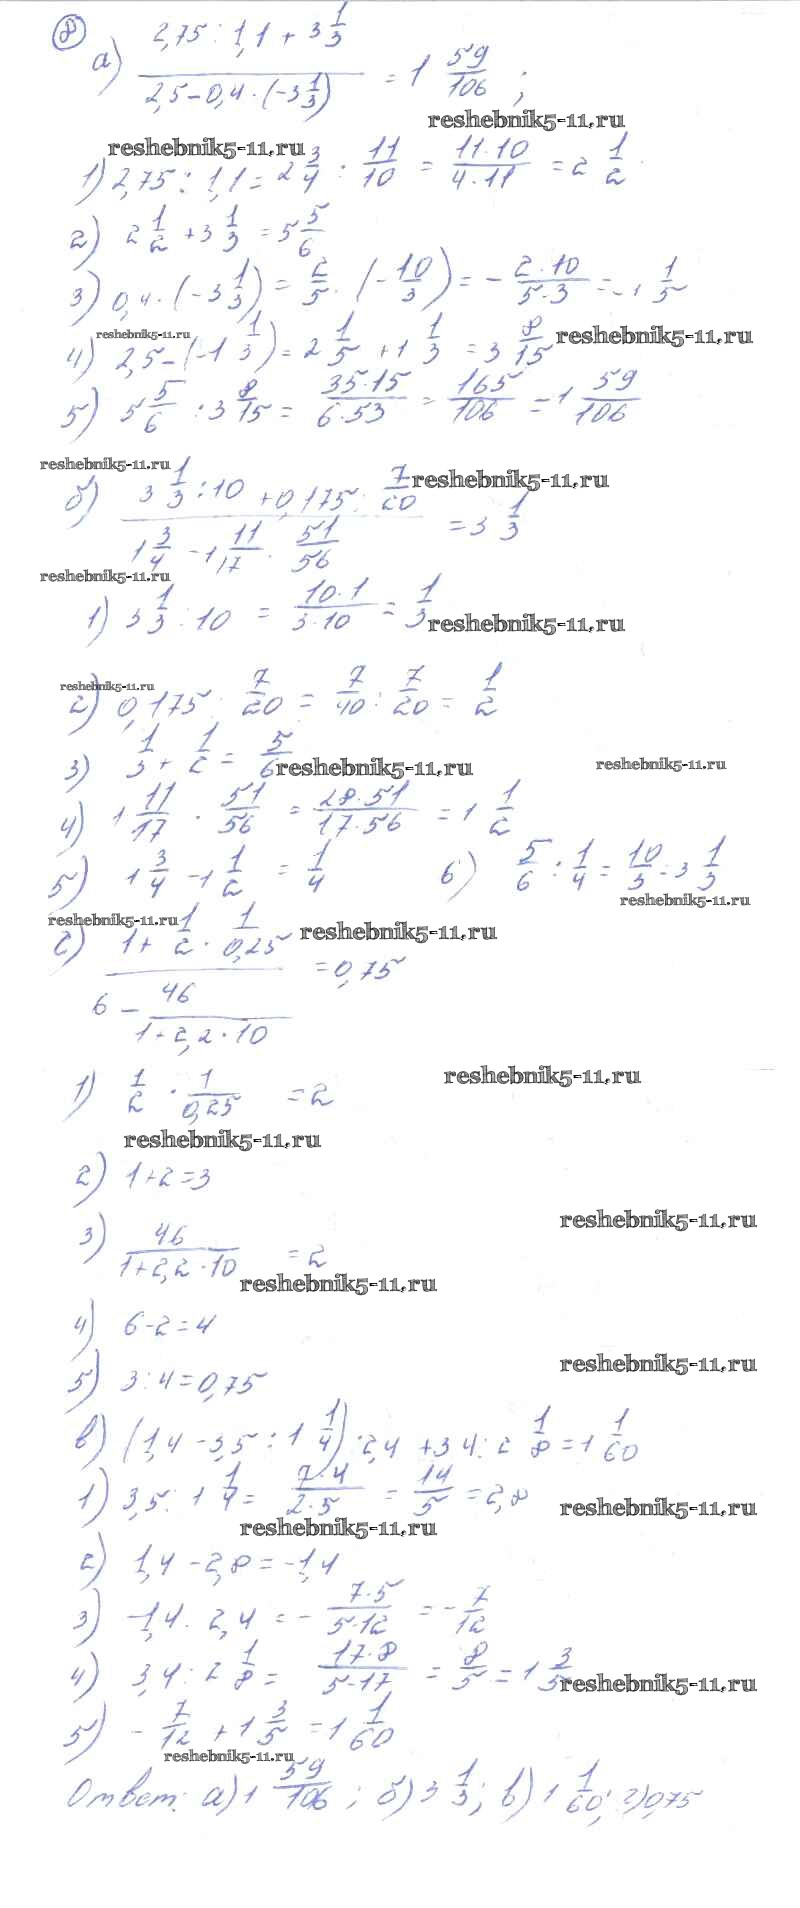 8
а) (2,75 : 1,1 + 3 1/3) / (2,5 - 0,4 · (-3 1/3)) = 1 59/106 ;
reshebnik5-11.ru
reshebnik5-11.ru
1) 2,75 : 1,1 = 2 3/4 : 11/10 = 11·10/4·11 = 2 1/2
2) 2 1/2 + 3 1/3 = 5 5/6
3) 0,4 · (-3 1/3) = 2/5 · (-10/3) = - 2·10/5·3 = -1 1/5
reshebnik5-11.ru
reshebnik5-11.ru
4) 2,5 - (-1 1/3) = 2 1/5 + 1 1/3 = 3 8/15
5) 5 5/6 : 3 8/15 = 35·15/6·53 = 165/106 = 1 59/106
reshebnik5-11.ru
reshebnik5-11.ru
б) (3 1/3 : 10 + 0,175 : 7/20) / (1 3/4 - 1 11/17 · 51/56) = 3 1/3
reshebnik5-11.ru
1) 3 1/3 : 10 = 10·1/3·10 = 1/3
reshebnik5-11.ru
reshebnik5-11.ru
2) 0,175 : 7/20 = 7/40 : 7/20 = 1/2
3) 1/3 + 1/2 = 5/6
reshebnik5-11.ru
reshebnik5-11.ru
4) 1 11/17 · 51/56 = 28·51/17·56 = 1 1/2
5) 1 3/4 - 1 1/2 = 1/4 6) 5/6 : 1/4 = 10/3 = 3 1/3
reshebnik5-11.ru
reshebnik5-11.ru
reshebnik5-11.ru
с) (1 + 1/2 · 1/0,25) / (6 - 46/(1+2,2·10)) = 0,75
reshebnik5-11.ru
1) 1/2 · 1/0,25 = 2
reshebnik5-11.ru
2) 1+2=3
reshebnik5-11.ru
3) 46/(1+2,2·10) = 2
reshebnik5-11.ru
4) 6-2=4
reshebnik5-11.ru
5) 3:4=0,75
в) (1,4 - 3,5 : 1 1/4) : 2,4 + 3 4 : 2 1/8 = 1 1/60
1) 3,5 : 1 1/4 = 7·4/2·5 = 14/5 = 2,8
reshebnik5-11.ru
reshebnik5-11.ru
2) 1,4 - 2,8 = -1,4
3) -1,4 : 2,4 = - 7·5/5·12 = - 7/12
4) 3,4 : 2 1/8 = 17·8/5·17 = 8/5 = 1 3/5
reshebnik5-11.ru
5) - 7/12 + 1 3/5 = 1 1/60
reshebnik5-11.ru
Ответ: а) 1 59/106 ; б) 3 1/3 ; в) 1 1/60 ; г) 0,75